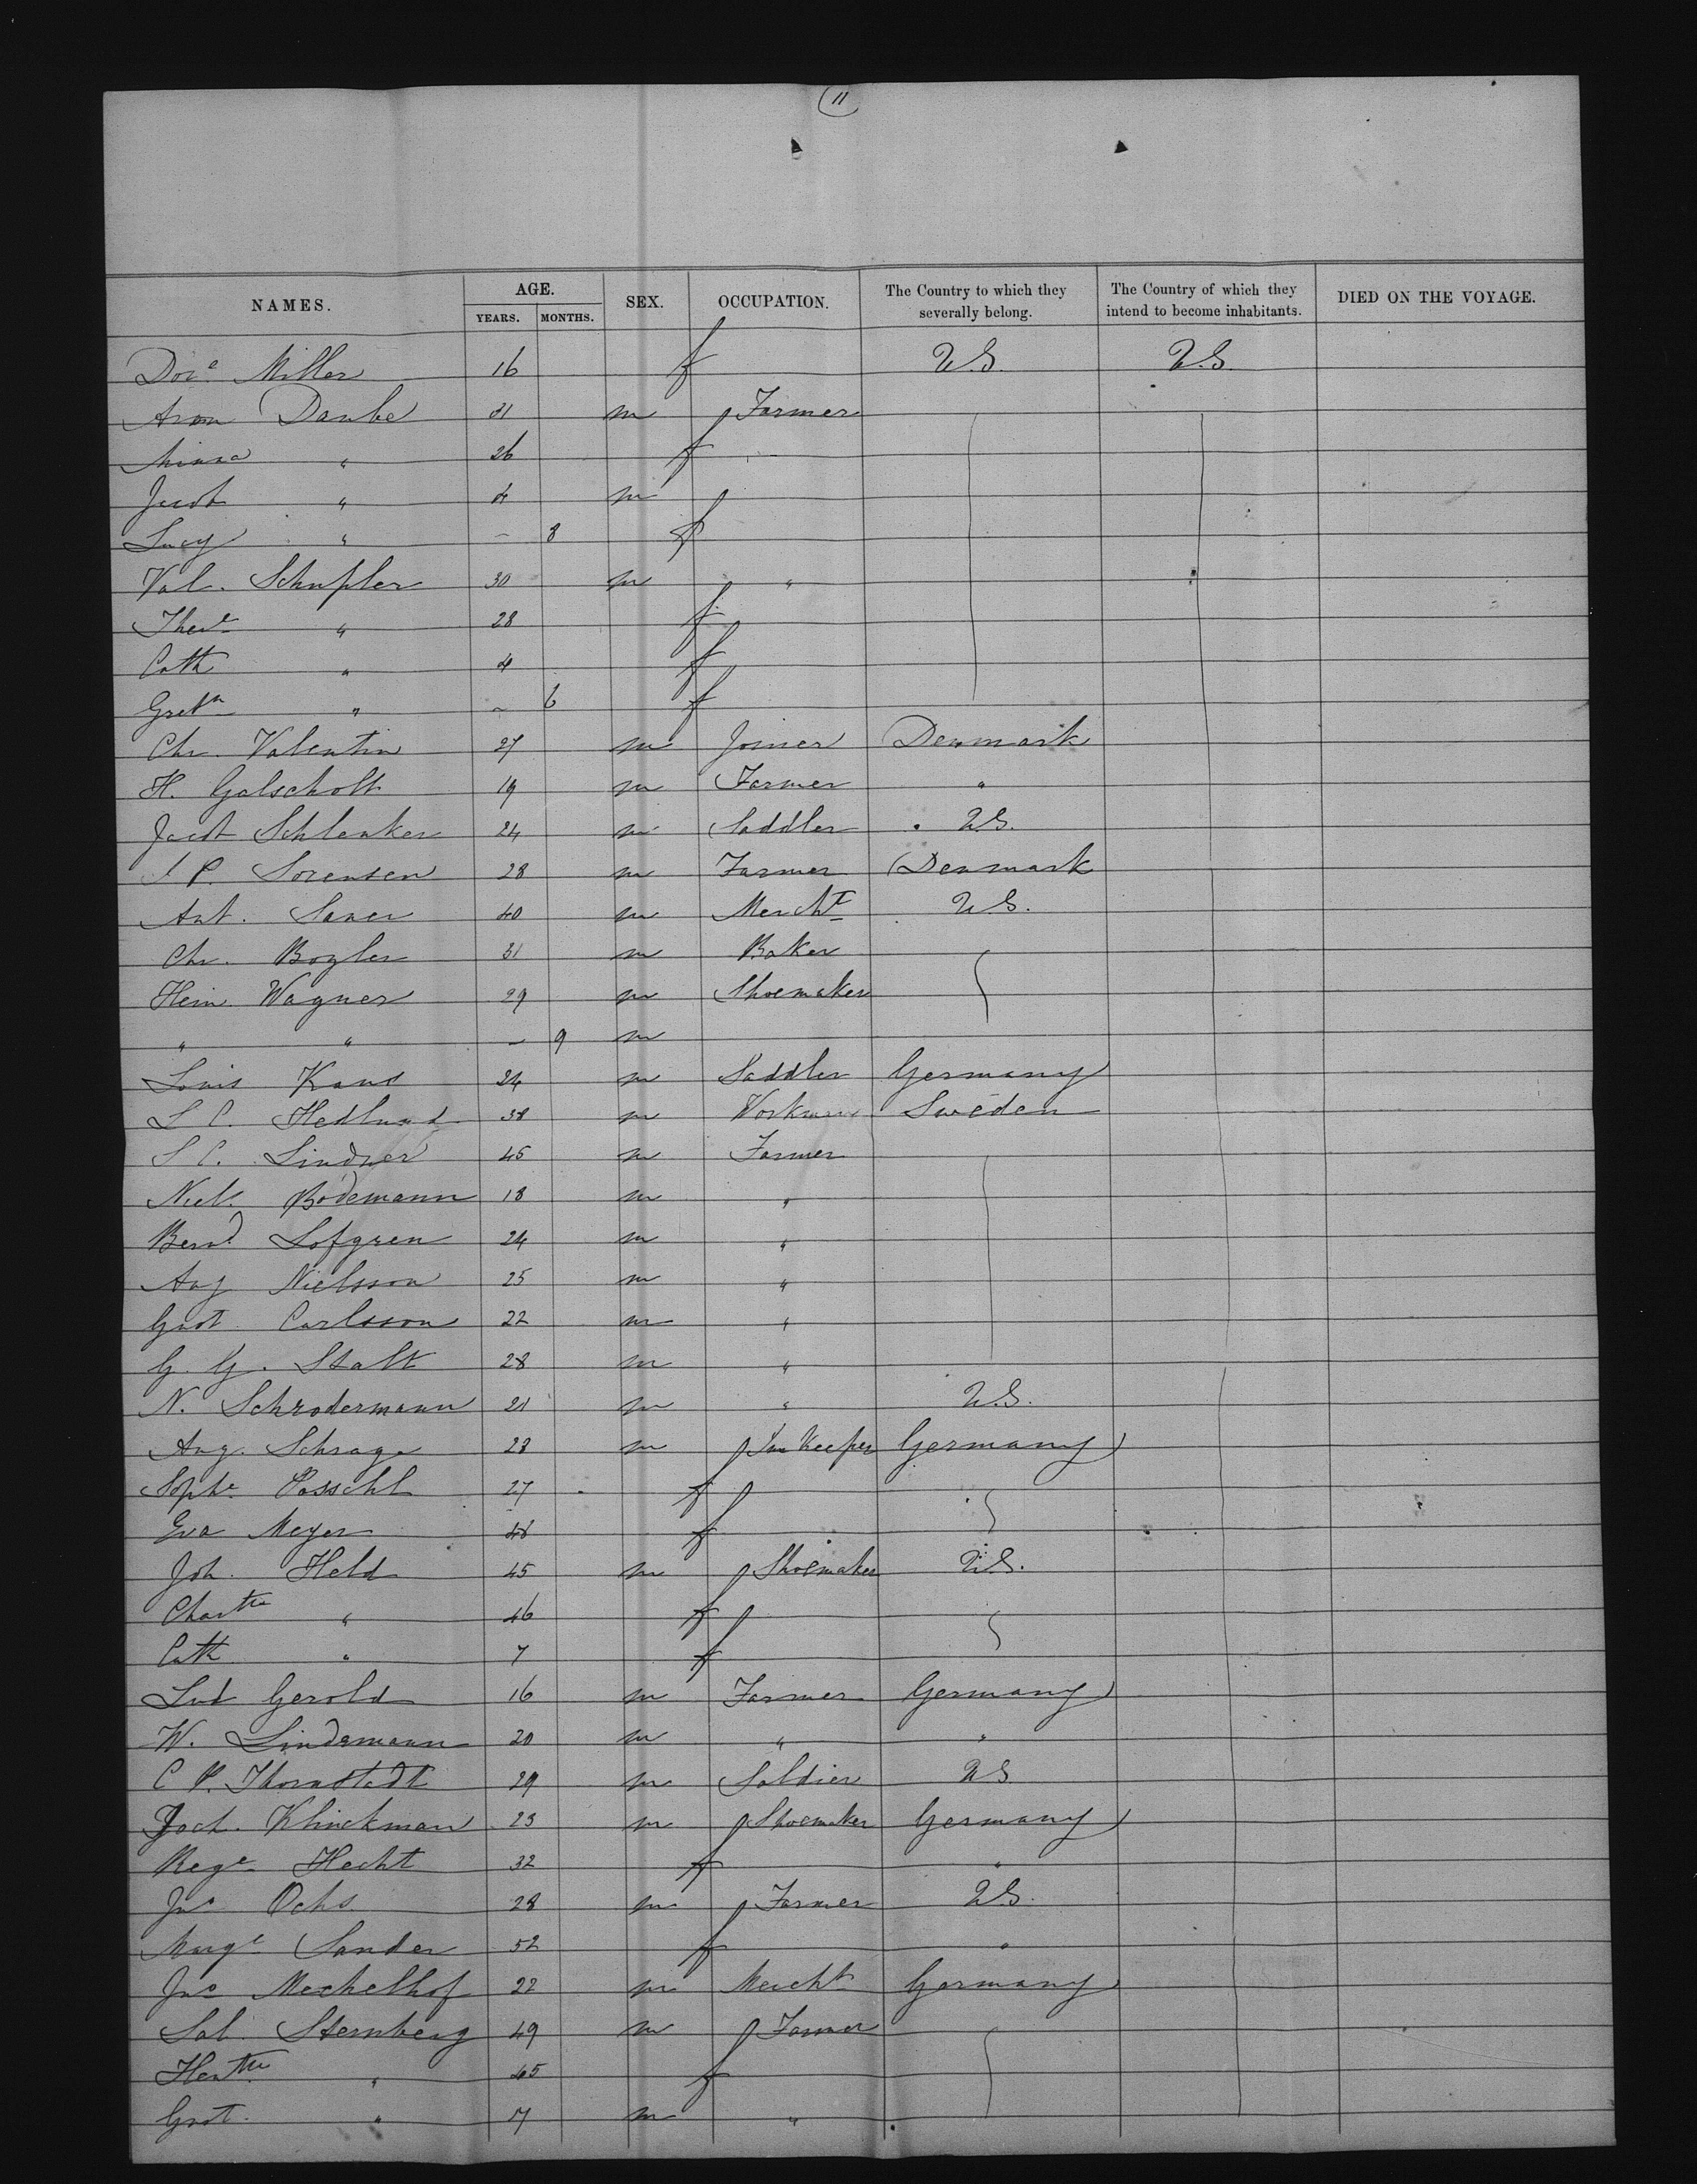 11
NAMES. AGE. YEARS. MONTHS. SEX. OCCUPATION. The Country to which they severally belong. The Country of which they intend to become inhabitants. DIED ON THE VOYAGE.
Miller 16 f U.S. U.S.
Aron Daube 31 m Farmer
Minna " 26 f
Jacob " 4 m
Lucy " – 8 f
Val. Schussler 30 m "
Ther.e " 28 f
Cath " 4 f
Greth " – 6 f
Chr. Valentin 27 m Joiner Denmark
H. Galscholt 19 m Farmer "
Jacob Schlenker 24 m Saddler U.S.
P. Sorensen 28 m Farmer Denmark
Ant. Saner 40 m Merch.t U.S.
Chr. Bogler 31 m Baker
Hein. Wagner 29 m Shoemaker
" " – 9 m
Louis Kand 24 m Saddler Germany
L C. Hedlund 38 m Workman Sweden
S C. Lindner 45 m Farmer
Niels Bodemann 18 m "
Bern.d Lofgren 24 m "
Aug Nielsson 25 m "
Gust. Carlsson 22 m "
G. G. Stalt 28 m "
N. Schrodermann 21 m " U.S.
Aug. Schrage 28 m Inn Keeper Germany
Soph.e Posschl 27 f
Eva Meyer 48 f
Joh. Held 45 m Shoemaker U.S.
" 46 f
Cath " 7 f
Lud Gerold 16 m Farmer Germany
W. Lindemann 20 m " "
C P. Thornstedt 29 m Soldier U.S.
Joch. Klinckman 23 m Shoemaker Germany
Reg.e Hecht 32 f "
Jac Ochs 28 m Farmer U.S.
Marg.e Sander 52 f "
Jac Mechelhof 22 m Mercht Germany
Sal. Sternberg 49 m Farmer
" 45 f
Gust. " 7 m "